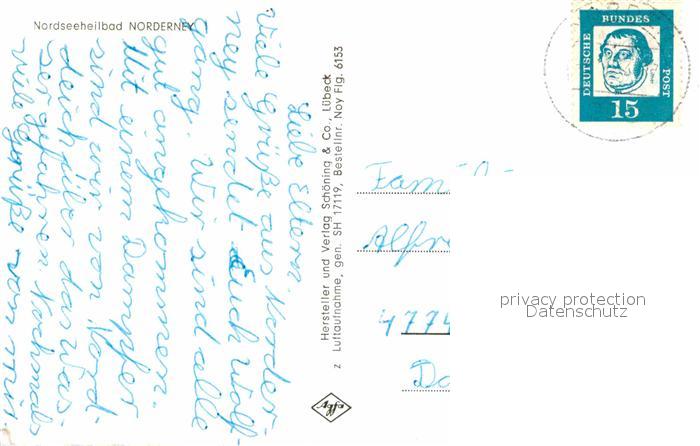 Nordseeheilbad NORDERNEY
Liebe Eltern.
Viele Grüße aus Norder-
ney sendet Euch Wolf-
gang. Wir sind alle
gut angekommen.
Mit einem Dampfer
sind wir von Nord-
deich über das Was-
ser gefahren. Nochmals
viele Grüße von mir.
Hersteller und Verlag Schöning & Co., Lübeck
z Luftaufnahme, gen. SH 17119, Bestellnr. Noy Flg. 6153
Agfa
DEUTSCHE BUNDES POST
15
Fam
Alfre
4774
Do
privacy protection
Datenschutz